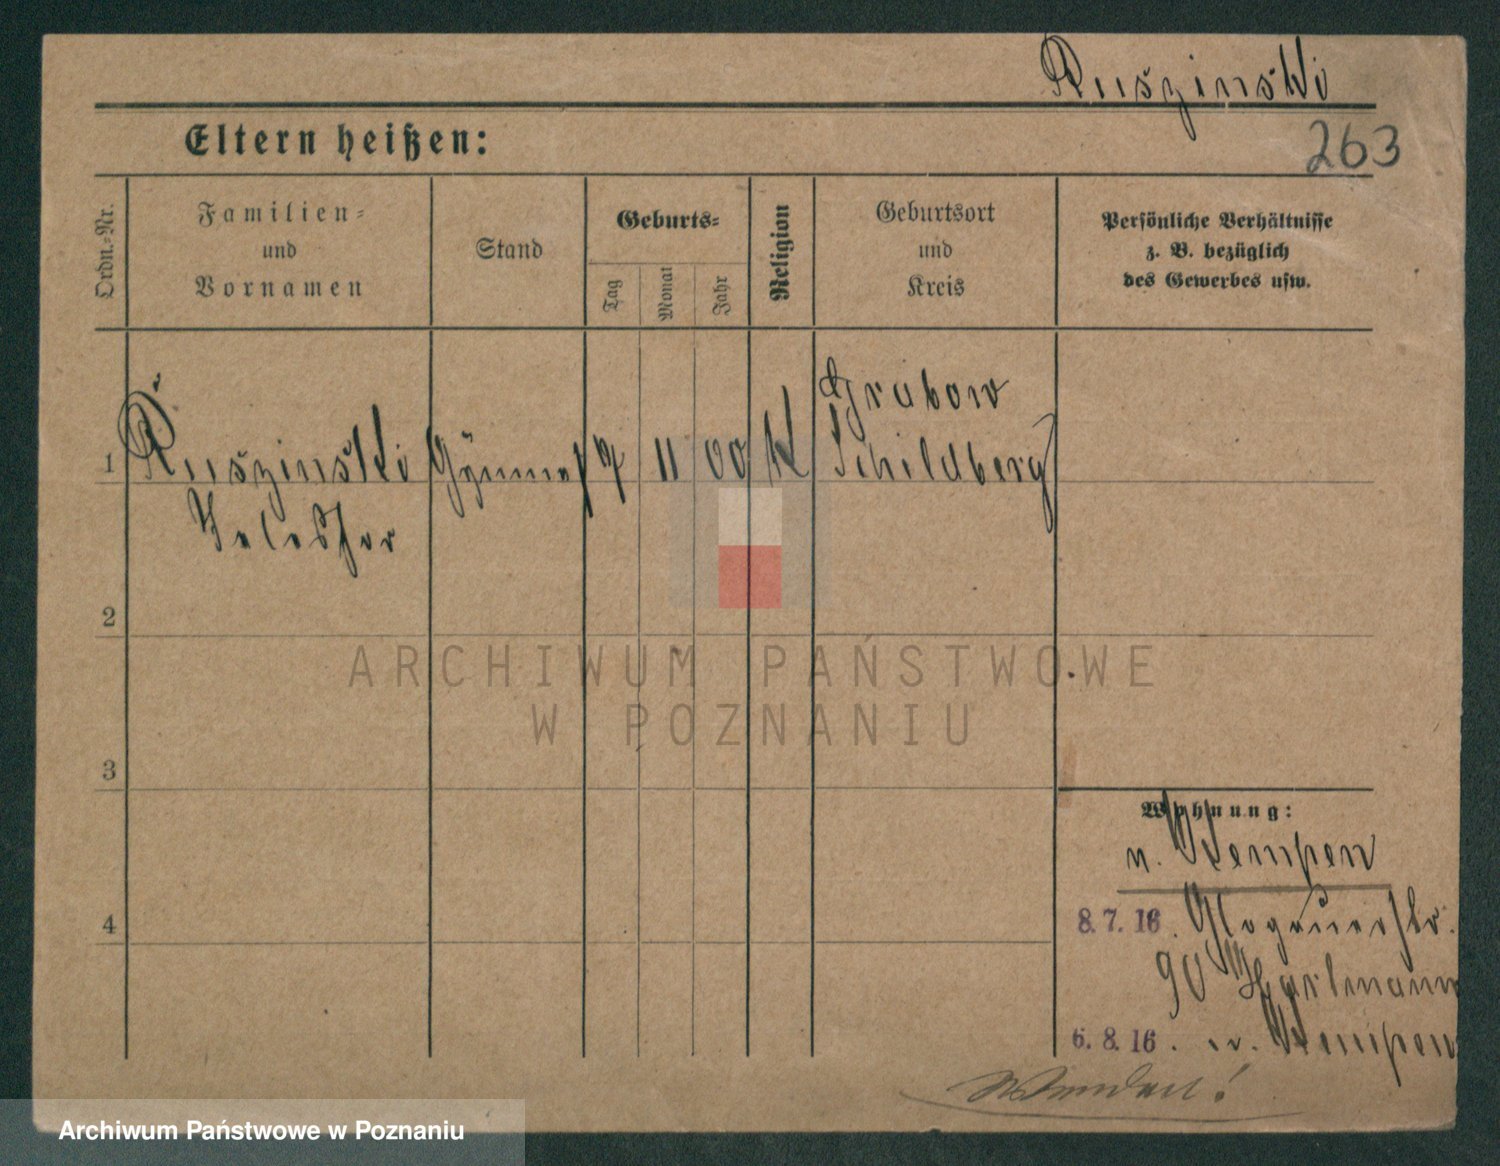 Ruszinski
263
Eltern heißen:
Ordn.-Nr.
Familien-
und
Vornamen
Stand
Geburts-
Tag
Monat
Jahr
Religion
Geburtsort
und
Kreis
Persönliche Verhältnisse
z. B. bezüglich
des Gewerbes usw.
Grabow
1 Ruszinski Gymnas 11 00 K Schildberg
Telesfor
2
3
4
Wohnung:
n. Kempen
8.7.16. Glogauerstr.
90 Hartmann
6.8.16. n. Kempen
Wenden!
ARCHIWUM PAŃSTWOWE
W POZNANIU
Archiwum Państwowe w Poznaniu